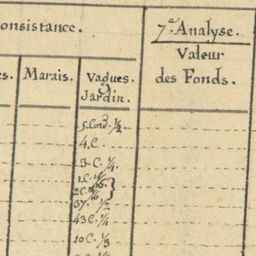 onsistance.
7.e Analyse.
Valeur
des Fonds.
es. Marais. Vagues.
Jardin.
5. Cord. 1/2
4. C.
3. C. 1/4.
1. C.
2C.
37. 1/2
43 C. 1/4
10 C. 1/3